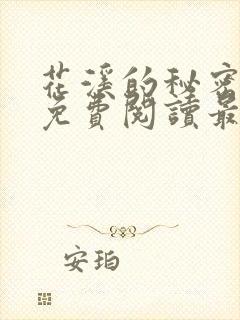 花溪的秘密
免費閱讀最
安珀